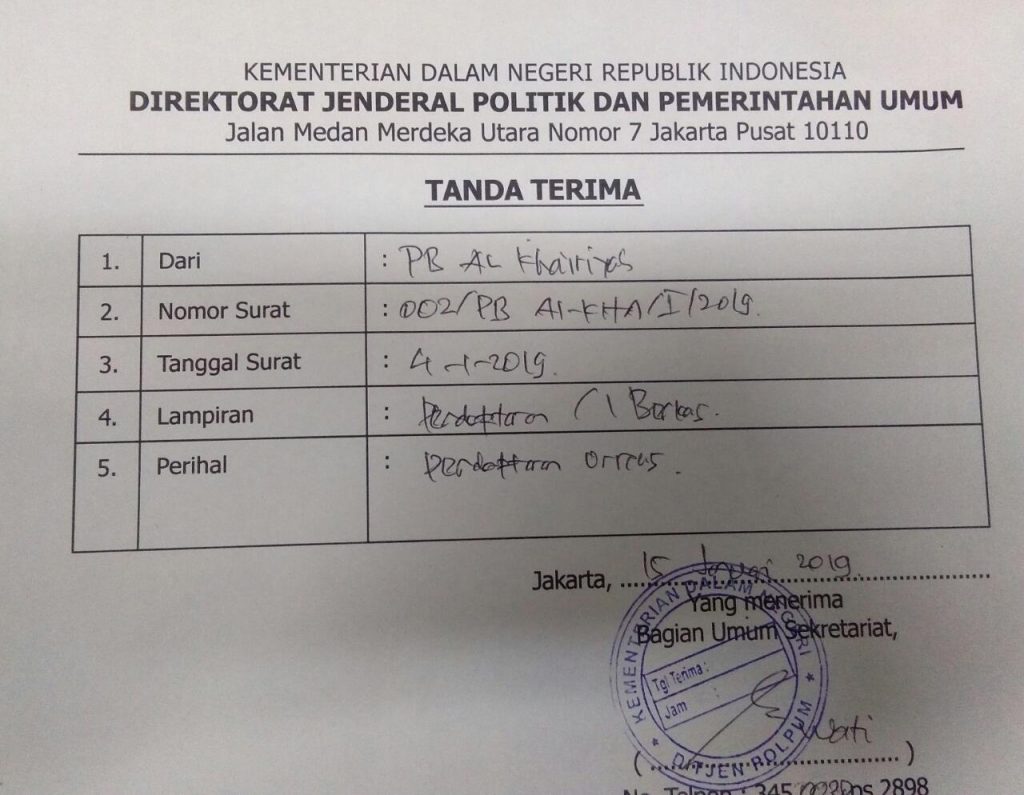 KEMENTERIAN DALAM NEGERI REPUBLIK INDONESIA
DIREKTORAT JENDERAL POLITIK DAN PEMERINTAHAN UMUM
Jalan Medan Merdeka Utara Nomor 7 Jakarta Pusat 10110
TANDA TERIMA
1. Dari : PB AL Khairiyah
2. Nomor Surat : 002/PB Al-KHA/I/2019.
3. Tanggal Surat : 4-1-2019.
4. Lampiran : Pendaftaran / 1 Berkas.
5. Perihal : Pendaftaran Ormas.
Jakarta, 15 Januari 2019
Yang menerima
Bagian Umum Sekretariat,
KEMENTERIAN DALAM NEGERI
Tgl Terima :
Jam :
* DITJEN POLPUM *
Wati
(....................)
No. Telpon : 345 2898